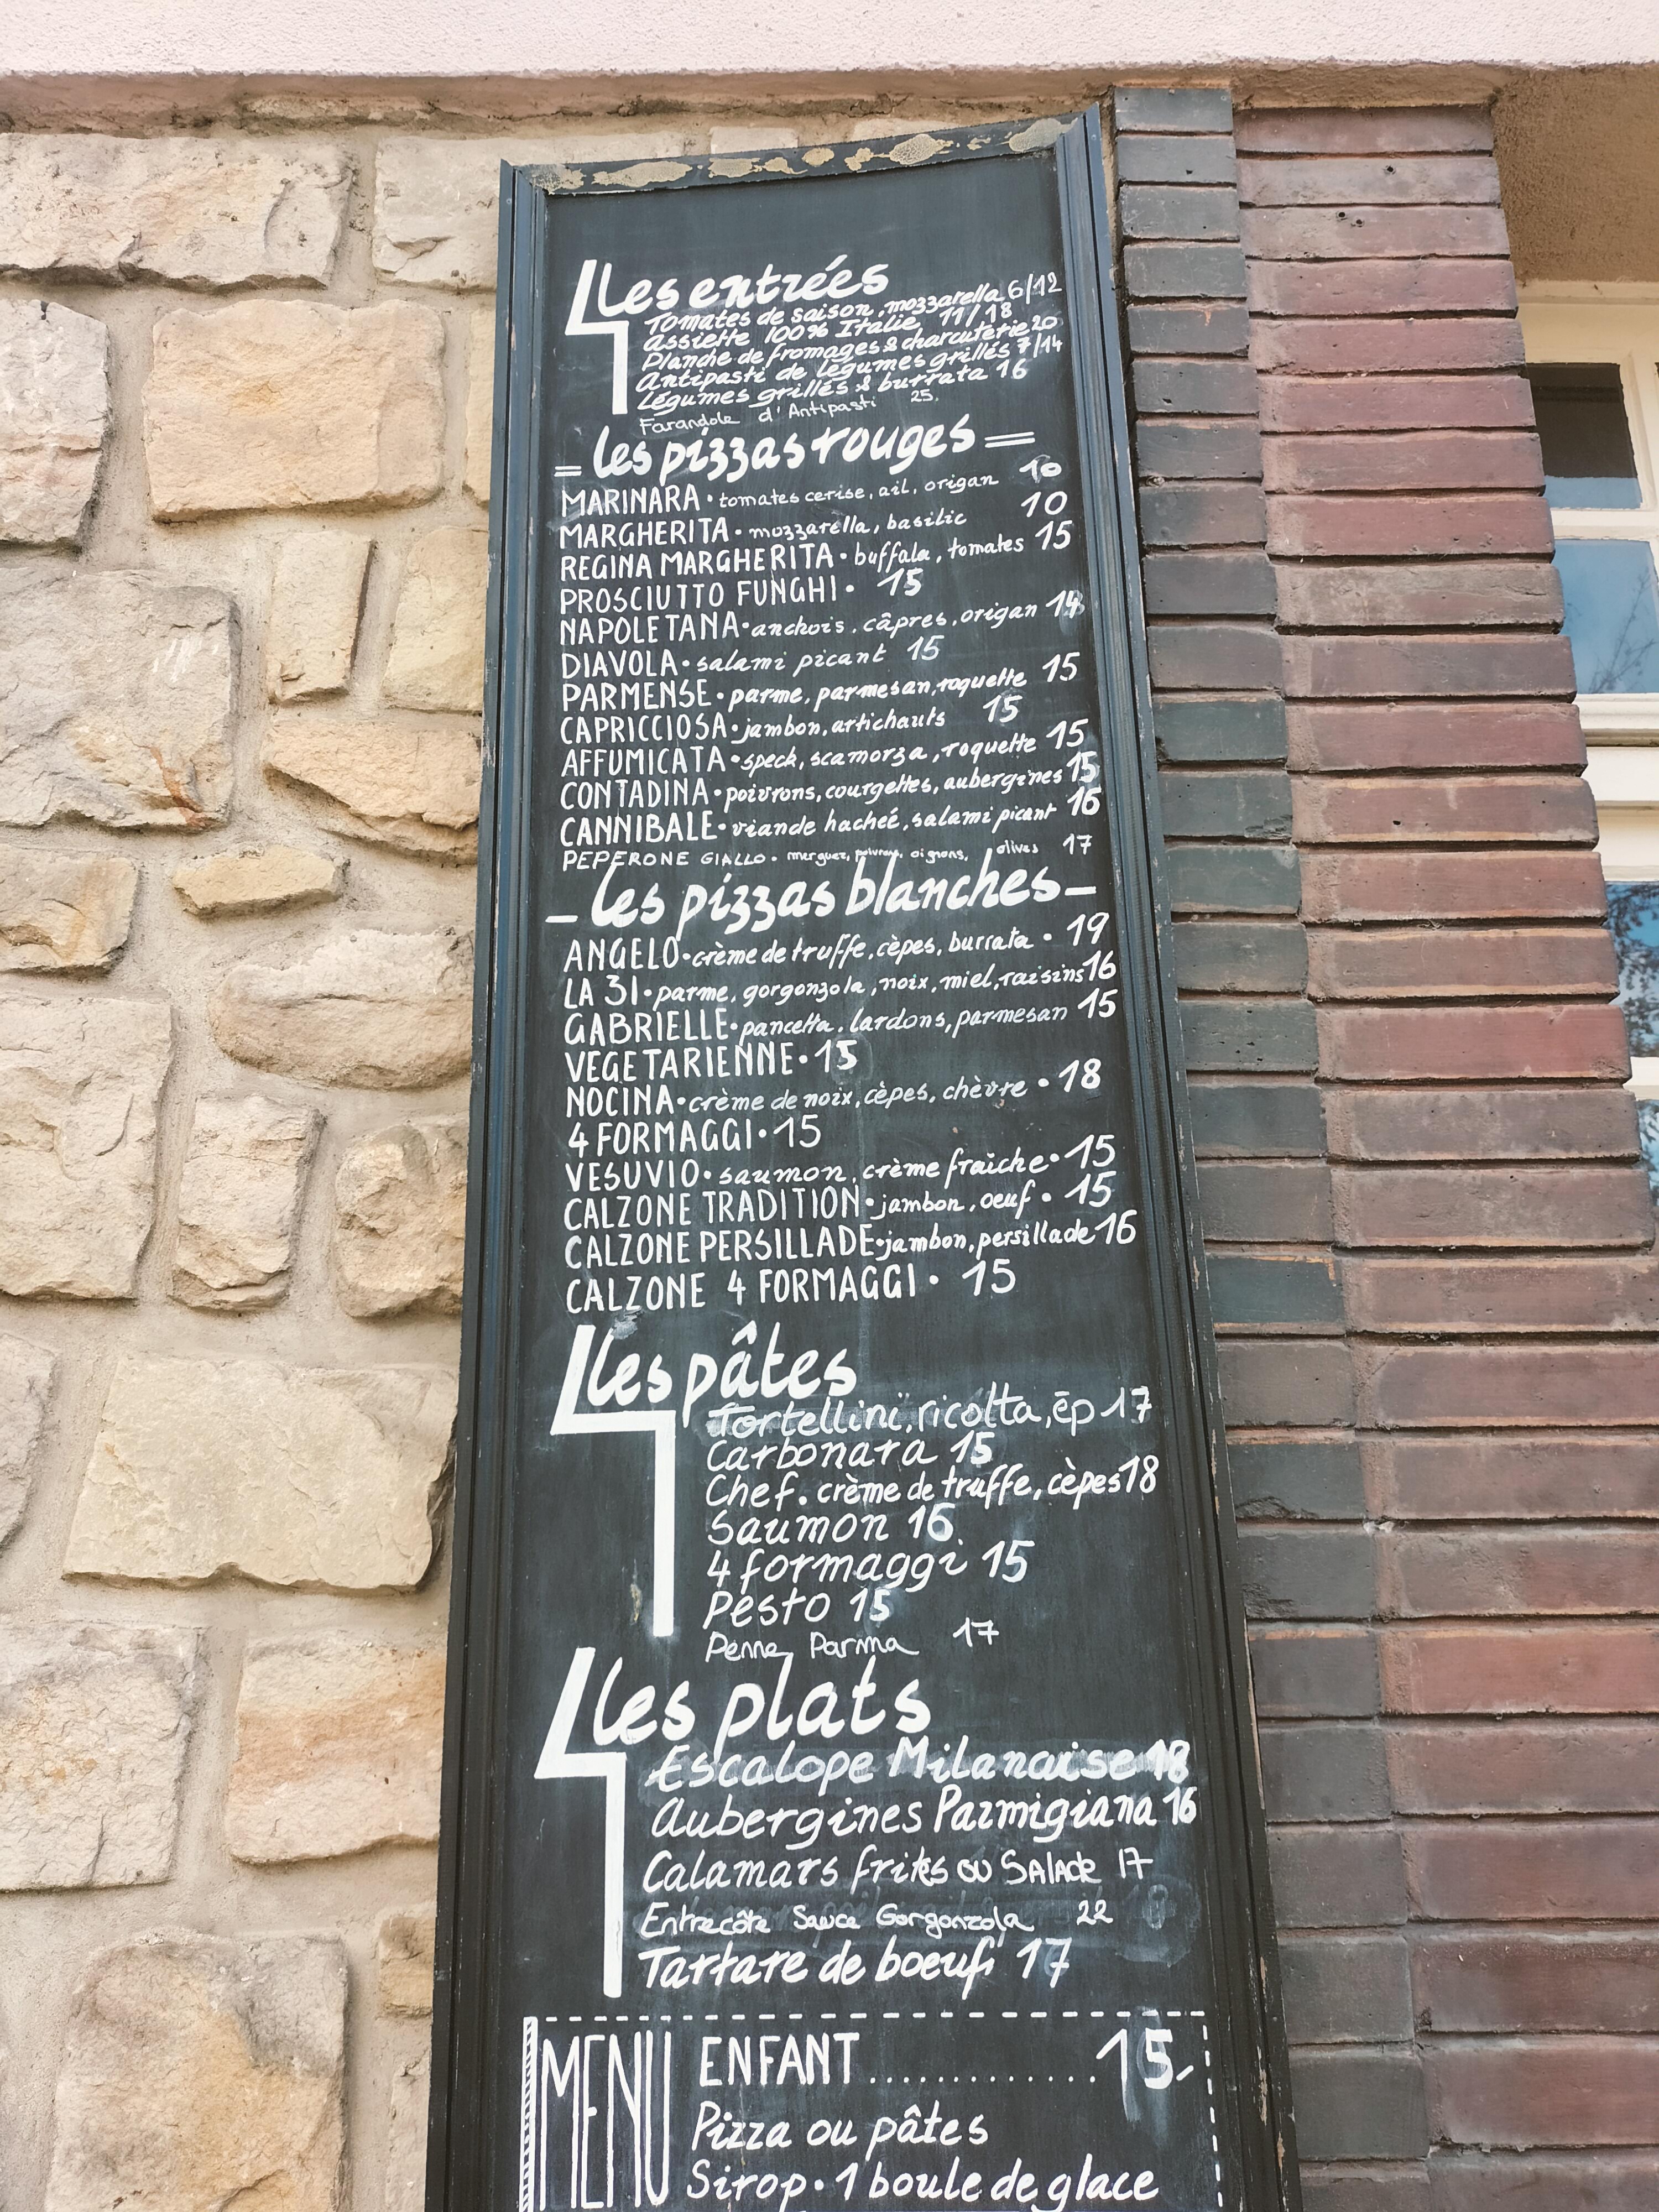 les entrées
Tomates de saison, mozzarella 6/12
assiette 100% Italie, 11/18
Planche de fromages & charcuterie 20
Antipasti de légumes grillés 7/14
Légumes grillés & burrata 16
Farandole d'Antipasti 25.
= les pizzas rouges =
MARINARA • tomates cerise, ail, origan 10
MARGHERITA • mozzarella, basilic 10
REGINA MARGHERITA • buffala, tomates 15
PROSCIUTTO FUNGHI • 15
NAPOLETANA • anchois, câpres, origan 14
DIAVOLA • salami picant 15
PARMENSE • parme, parmesan, roquette 15
CAPRICCIOSA • jambon, artichauts 15
AFFUMICATA • speck, scamorza, roquette 15
CONTADINA • poivrons, courgettes, aubergines 15
CANNIBALE • viande hacheé, salami picant 16
PEPERONE GIALLO • merguez, poivrons, oignons, olives 17
- les pizzas blanches -
ANGELO • crème de truffe, cèpes, burrata • 19
LA 31 • parme, gorgonzola, noix, miel, raisins 16
GABRIELLE • pancetta, lardons, parmesan 15
VEGETARIENNE • 15
NOCINA • crème de noix, cèpes, chèvre • 18
4 FORMAGGI • 15
VESUVIO • saumon, crème fraîche • 15
CALZONE TRADITION • jambon, oeuf • 15
CALZONE PERSILLADE • jambon, persillade 16
CALZONE 4 FORMAGGI • 15
les pâtes
Tortellini, ricotta, ép 17
Carbonara 15
Chef. crème de truffe, cèpes 18
Saumon 16
4 formaggi 15
Pesto 15
Penne Parma 17
les plats
Escalope Milanaise 18
Aubergines Parmigiana 16
Calamars frites ou SALADE 17
Entrecôte Sauce Gorgonzola 22
Tartare de boeuf 17
MENU ENFANT ............. 15,-
Pizza ou pâtes
Sirop • 1 boule de glace